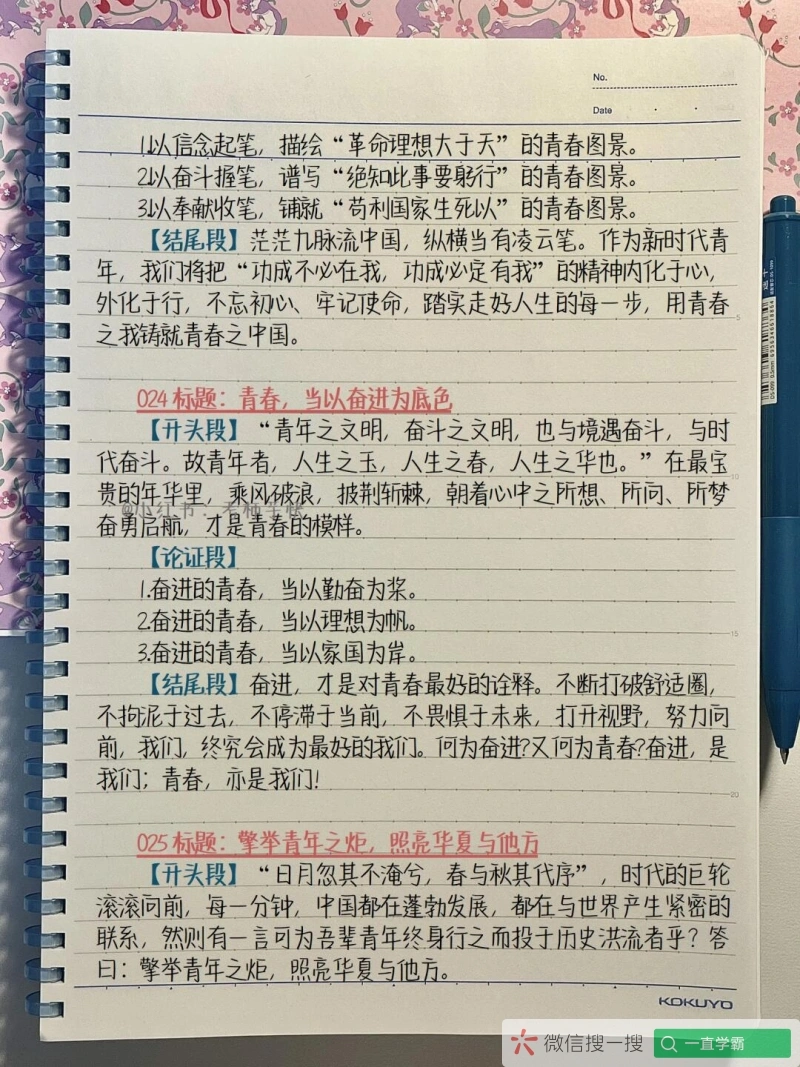 No.
Date
1.以信念起笔，描绘“革命理想大于天”的青春图景。
2.以奋斗握笔，谱写“绝知此事要躬行”的青春图景。
3.以奉献收笔，铺就“苟利国家生死以”的青春图景。
【结尾段】茫茫九脉流中国，纵横当有凌云笔。作为新时代青
年，我们将把“功成不必在我，功成必定有我”的精神内化于心，
外化于行，不忘初心、牢记使命，踏实走好人生的每一步，用青春
之我铸就青春之中国。
5
024 标题：青春，当以奋进为底色
【开头段】“青年之文明，奋斗之文明，也与境遇奋斗，与时
代奋斗。故青年者，人生之王，人生之春，人生之华也。”在最宝
10
贵的年华里，乘风破浪，披荆斩棘，朝着心中之所想、所问、所梦
奋勇启航，才是青春的模样。
【论证段】
1.奋进的青春，当以勤奋为桨。
2.奋进的青春，当以理想为帆。
15
3.奋进的青春，当以家国为岸。
【结尾段】奋进，才是对青春最好的诠释。不断打破舒适圈，
不拘泥于过去，不停滞于当前，不畏惧于未来，打开视野，努力向
前，我们，终究会成为最好的我们。何为奋进？又何为青春？奋进，是
我们；青春，亦是我们！
20
025 标题：擎举青年之炬，照亮华夏与他方
【开头段】“日月忽其不淹兮，春与秋其代序”，时代的巨轮
滚滚向前，每一分钟，中国都在蓬勃发展，都在与世界产生紧密的
联系，然则有一言可为吾辈青年终身行之而投于历史洪流者乎？答
曰：擎举青年之炬，照亮华夏与他方。
KOKUYO
微信搜一搜
一直学霸